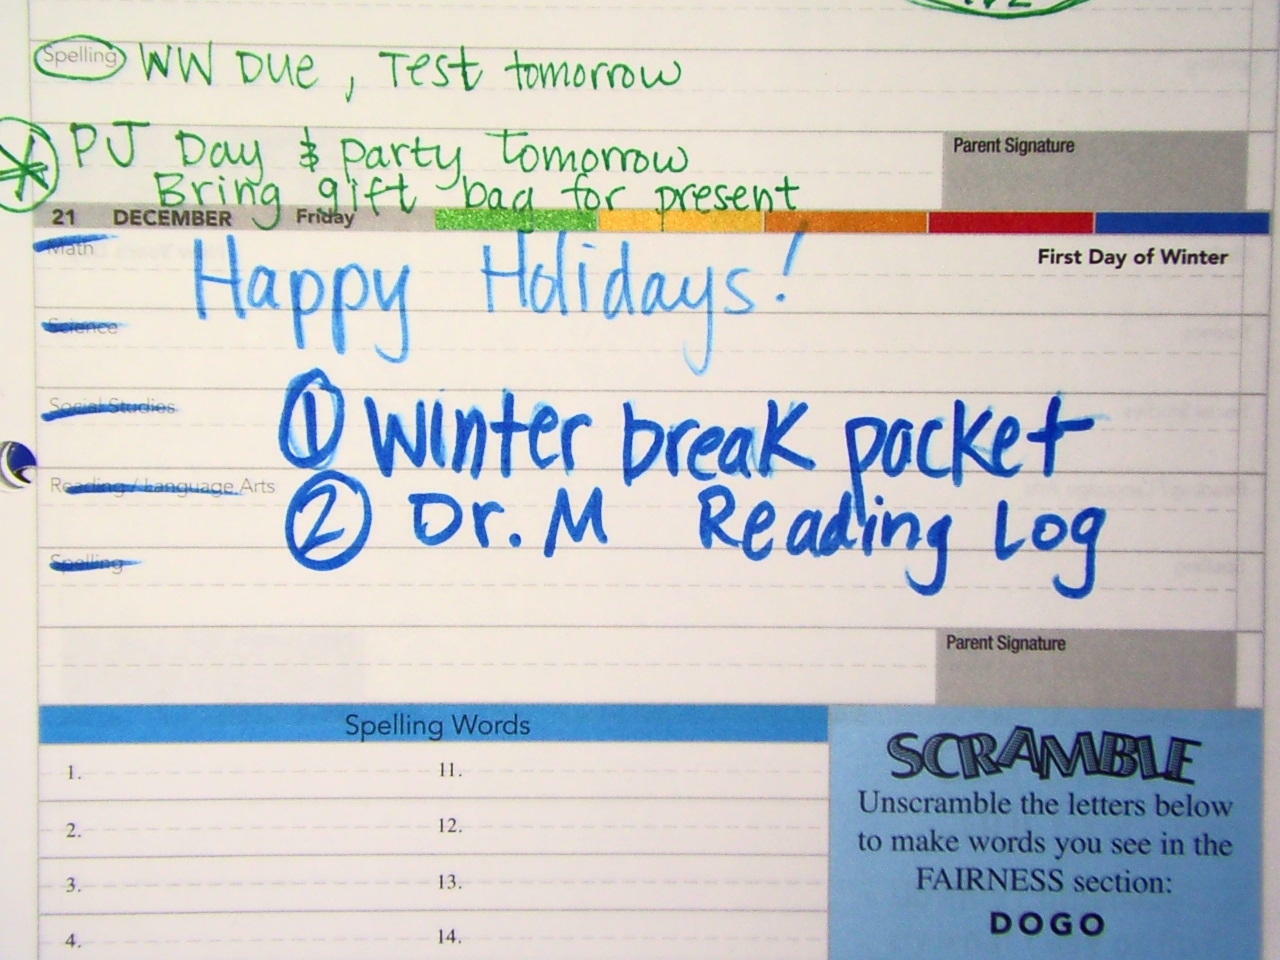 Spelling WW Due, Test tomorrow
PJ Day & party tomorrow
Parent Signature
Bring gift bag for present
21 DECEMBER Friday
Math
Happy Holidays!
First Day of Winter
Science
Social Studies
1 Winter break packet
Reading / Language Arts
2 Dr. M Reading Log
Spelling
Parent Signature
Spelling Words
SCRAMBLE
1. 11.
Unscramble the letters below
2. 12.
to make words you see in the
3. 13.
FAIRNESS section:
DOGO
4. 14.